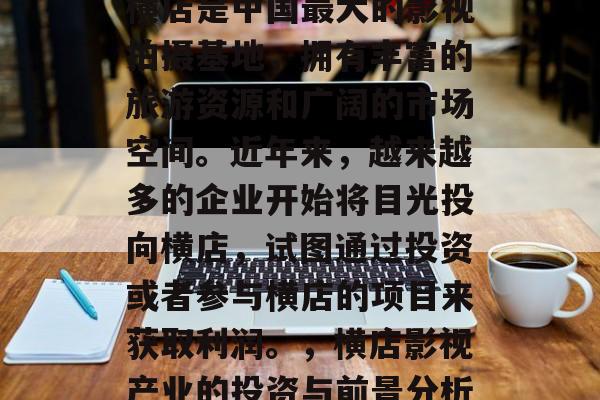 横店是中国最大的影视
拍摄基地，拥有丰富的
旅游资源和广阔的市场
空间。近年来，越来越
多的企业开始将目光投
向横店，试图通过投资
或者参与横店的项目来
获取利润。，横店影视
产业的投资与前景分析